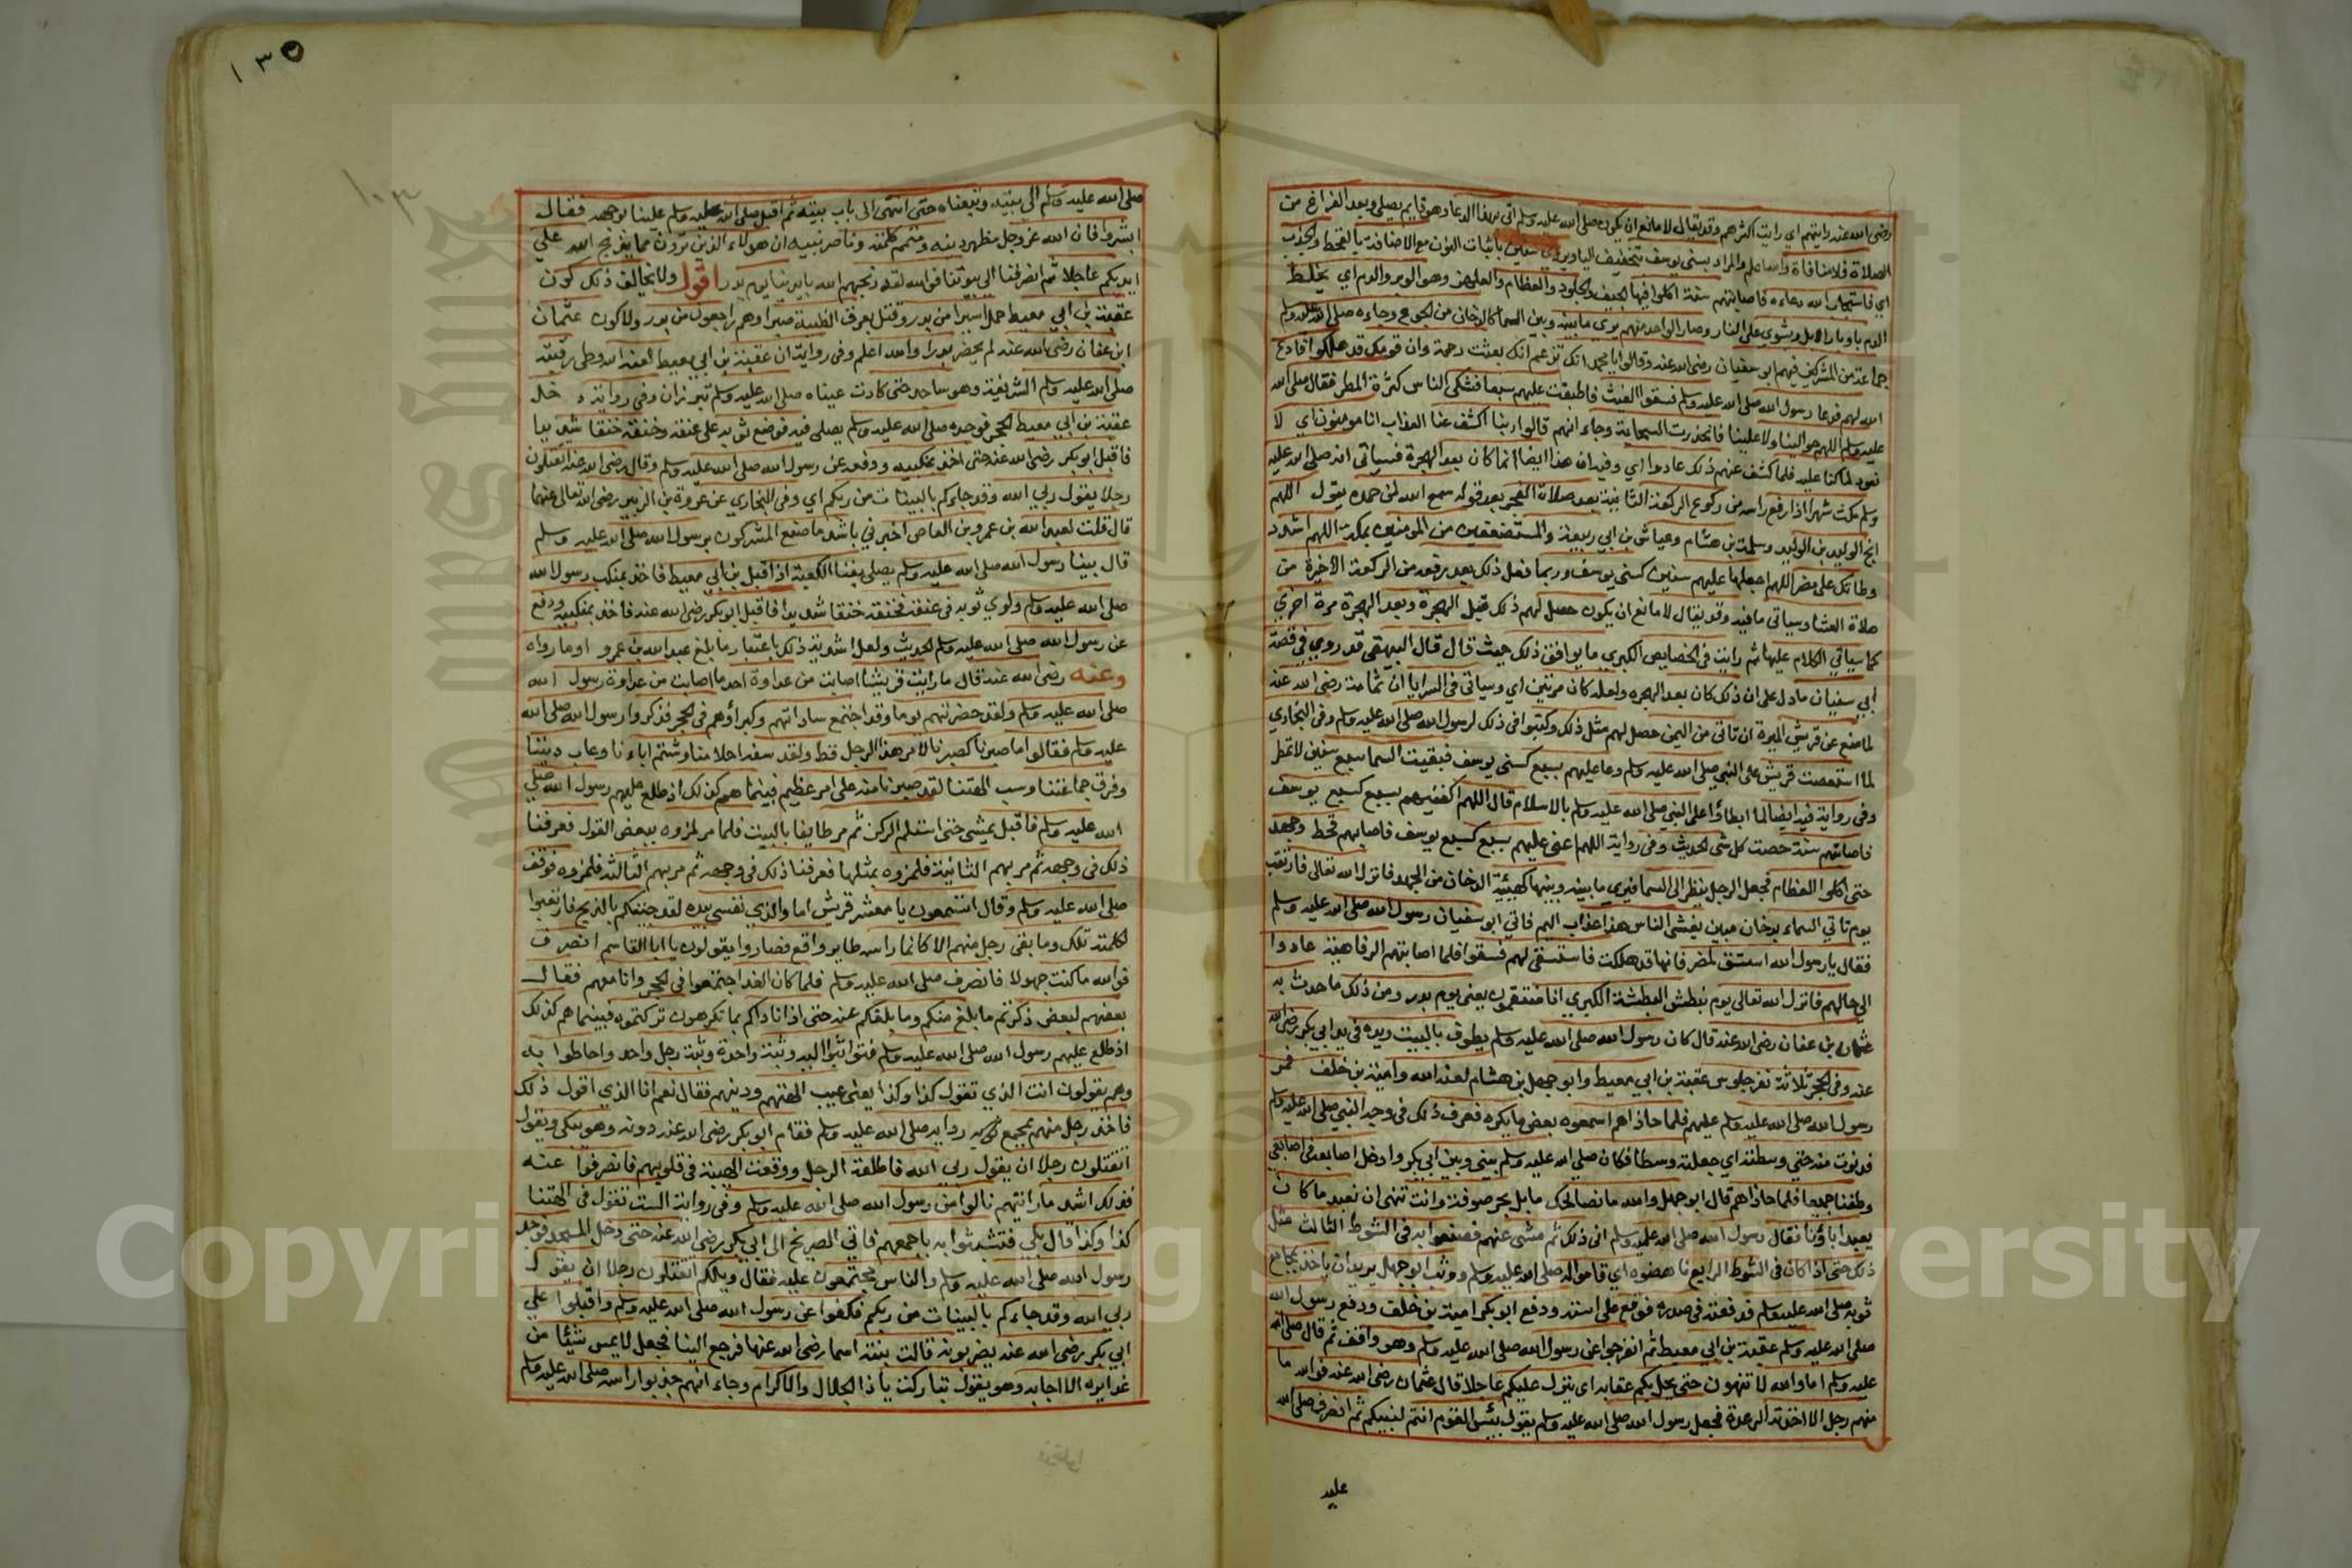 رضى الله عنه رايتهم اي رايت اكثرهم وقد يقال لا مانع ان يكون صلى الله عليه وسلم اتى بهذا الدعاء وهو قايم يصلي وبعد الفراغ من
الصلاة فلا منافاة والله اعلم والمراد بسنى يوسف بتخفيف الياء ويروى سنين باثبات النون مع الاضافة بالقحط والجدب
اي فاستجاب الله دعاءه فاصابتهم سنة اكلوا فيها الجيف والجلود والعظام والعلهز وهو الوبر والدم اي يخلط
الدم باوبار الابل ويشوى على النار وصار الواحد منهم يرى ما بينه وبين السما كالدخان من الجوع وجاءه صلى الله عليه وسلم
جماعة من المشركين فيهم ابو سفيان رضى الله عنه وقالوا يا محمد انك تزعم انك بعثت رحمة وان قومك قد هلكوا فادع
الله لهم فدعا رسول الله صلى الله عليه وسلم فسقوا الغيث فاطبقت عليهم سبعا فشكى الناس كثرة المطر فقال صلى الله
عليه وسلم اللهم حوالينا ولا علينا فانحدرت السحابة وجاء انهم قالوا ربنا اكشف عنا العذاب انا مومنون اي لا
نعود لما كنا عليه فلما كشف عنهم ذلك عادوا اي وفيه ان هذا ايضا انما كان بعد الهجرة فسياتى انه صلى الله عليه
وسلم مكث شهرا اذا رفع راسه من ركوع الركعة الثانية بعد صلاة الفجر بعد قوله سمع الله لمن حمده يقول اللهم
انج الوليد بن الوليد وسلمة بن هشام وعياش بن ابي ربيعة والمستضعفين من المومنين بمكة اللهم اشدد
وطاتك على مضر اللهم اجعلها عليهم سنين كسنى يوسف وربما فعل ذلك بعد رفعه من الركعة الاخيرة من
صلاة العشا وسياتى ما فيه وقد يقال لا مانع ان يكون حصل لهم ذلك قبل الهجرة وبعد الهجرة مرة اخري
كما سياتي الكلام عليها ثم رايت فى الخصايص الكبري ما يوافق ذلك حيث قال قال البيهقى قد روي في قصة
ابي سفيان ما دل على ان ذلك كان بعد الهجره ولعله كان مرتين اي وسياتى في السرايا ان ثمامة رضى الله عنه
لما منع عن قريش الميرة ان تاتى من اليمن حصل لهم مثل ذلك وكتبوا في ذلك لرسول الله صلى الله عليه وسلم وفى البخاري
لما استعصت قريش على النبي صلى الله عليه وسلم دعا عليهم بسبع كسنى يوسف فبقيت السما سبع سنين لا تمطر
وفى رواية فيه ايضا لما ابطاؤا على النبي صلى الله عليه وسلم بالاسلام قال اللهم اكفنيهم بسبع كسبع يوسف
فاصابتهم سنة حصت كل شى الحديث وفى رواية اللهم اعنى عليهم بسبع كسبع يوسف فاصابهم قحط وجهد
حتى اكلوا العظام فجعل الرجل ينظر الى السما فيري ما بينه وبينها كهيئة الدخان من الجهد فانزل الله تعالى فارتقب
يوم تاتي السماء بدخان مبين يغشى الناس هذا عذاب اليم فاتي ابو سفيان رسول الله صلى الله عليه وسلم
فقال يا رسول الله استسق لمضر فانها قد هلكت فاستسقى لهم فسقوا فلما اصابتهم الرفاهية عادوا
الي حالهم فانزل الله تعالى يوم نبطش البطشة الكبري انا منتقمون يعنى يوم بدر ومن ذلك ما حدث به
عثمان بن عفان رضى الله عنه قال كان رسول الله صلى الله عليه وسلم يطوف بالبيت ويده في يد ابي بكر رضى الله
عنه وفى الحجر ثلاثة نفر جلوس عقبة بن ابي معيط وابو جهل بن هشام لعنه الله وامية بن خلف فمر
رسول الله صلى الله عليه وسلم عليهم فلما حاذاهم اسمعوه بعض ما يكره فعرف ذلك في وجه النبي صلى الله عليه وسلم
فدنوت منه حتى وسطته اي جعلته وسطا فكان صلى الله عليه وسلم بيني وبين ابي بكر وادخل اصابعه فى اصابعي
وطفنا جميعا فلما حاذاهم قال ابو جهل والله ما نصالحك ما بل بحر صوفة وانت تنهى ان نعبد ما كان
يعبد اباؤنا فقال رسول الله صلى الله عليه وسلم انى ذلك ثم مشى عنهم فصنعوا به فى الشوط الثالث مثل
ذلك حتى اذا كان فى الشوط الرابع ناهضوه اي قاموا له صلى الله عليه وسلم ووثب ابو جهل يريد ان ياخذ بمجامع
ثوبه صلى الله عليه وسلم فدفعته في صدره فوقع على استه ودفع ابو بكر امية بن خلف ودفع رسول الله
صلى الله عليه وسلم عقبة بن ابي معيط ثم انفرجوا عن رسول الله صلى الله عليه وسلم وهو واقف ثم قال صلى الله
عليه وسلم اما والله لا تنتهون حتى يحل بكم عقابه اي ينزل عليكم عاجلا قال عثمان رضى الله عنه فوالله ما
منهم رجل الا اخذته الرعدة فجعل رسول الله صلى الله عليه وسلم يقول بئس القوم انتم لنبيكم ثم انصرف صلى الله
عليه
١٣٥
١٠٣
صلى الله عليه وسلم الى بيته وتبعناه حتى انتهى الى باب بيته ثم اقبل صلى الله عليه وسلم علينا بوجهه فقال
ابشروا فان الله عز وجل مظهر دينه ومتمم كلمته وناصر نبيه ان هولاء الذين ترون مما يذبح الله علي
ايديكم عاجلا ثم انصرفنا الي بيوتنا فوالله لقد ذبحهم الله بايدينا يوم بدر اقول ولا يخالف ذلك كون
عقبة بن ابي معيط حمل اسيرا من بدر وقتل بعرق الظبية صبرا وهم راجعون من بدر ولا كون عثمان
ابن عفان رضى الله عنه لم يحضر بدرا والله اعلم وفى رواية ان عقبة بن ابي معيط لعنه الله وطى رقبته
صلى الله عليه وسلم الشريفة وهو ساجد حتى كادت عيناه صلى الله عليه وسلم تبرزان وفى رواية دخل
عقبة بن ابي معيط الحجر فوجده صلى الله عليه وسلم يصلى فيه فوضع ثوبه على عنقه وخنقه خنقا شديدا
فاقبل ابو بكر رضى الله عنه حتى اخذ بمنكبيه ودفعه عن رسول الله صلى الله عليه وسلم وقال رضى الله عنه اتقتلون
رجلا يقول ربي الله وقد جاءكم بالبينات من ربكم اي وفى البخاري عن عروة بن الزبير رضى الله تعالى عنهما
قال قلت لعبد الله بن عمرو بن العاص اخبرني باشد ما صنع المشركون برسول الله صلى الله عليه وسلم
قال بينا رسول الله صلى الله عليه وسلم يصلى بفنا الكعبة اذ اقبل بن ابي معيط فاخذ بمنكب رسول الله
صلى الله عليه وسلم ولوي ثوبه فى عنقه فخنقه خنقا شديدا فاقبل ابو بكر رضى الله عنه فاخذ بمنكبيه ودفع
عن رسول الله صلى الله عليه وسلم الحديث ولعل اشدية ذلك باعتبار ما بلغ عبد الله بن عمرو او ما رواه
وعنه رضى الله عنه قال ما رايت قريشا اصابت من عداوة احد ما اصابت من عداوة رسول الله
صلى الله عليه وسلم ولقد حضرتهم يوما وقد اجتمع ساداتهم وكبراؤهم فى الحجر فذكروا رسول الله صلى الله
عليه وسلم فقالوا ما صبرنا كصبرنا لامر هذا الرجل قط ولقد سفه احلامنا وشتم اباءنا وعاب ديننا
وفرق جماعتنا وسب الهتنا لقد صبرنا منه على امر عظيم فبينما هم كذلك اذ طلع عليهم رسول الله صلي
الله عليه وسلم فاقبل يمشى حتى استلم الركن ثم مر طايفا بالبيت فلما مر لمزوه ببعض القول فعرفنا
ذلك فى وجهه ثم مر بهم الثانية فلمزوه بمثلها فعرفنا ذلك فى وجهه ثم مر بهم الثالثة فلمزوه فوقف
صلى الله عليه وسلم وقال اتسمعون يا معشر قريش اما والذي نفسى بيده لقد جئتكم بالذبح فارتعبوا
لكلمته تلك وما بقى رجل منهم الا كانما راسه طاير واقع فصاروا يقولون يا ابا القاسم انصرف
فوالله ما كنت جهولا فانصرف صلى الله عليه وسلم فلما كان الغد اجتمعوا فى الحجر وانا معهم فقال
بعضهم لبعض ذكرتم ما بلغ منكم وما بلغكم عنه حتى اذا ناداكم بما تكرهون تركتموه فبينما هم كذلك
اذ طلع عليهم رسول الله صلى الله عليه وسلم فتواثبوا اليه وثبة واحدة وثبة رجل واحد واحاطوا به
وهم يقولون انت الذي تقول كذا وكذا يعنى عيب الهتهم ودينهم فقال نعم انا الذي اقول ذلك
فاخذ رجل منهم بمجمع ردايه صلى الله عليه وسلم فقام ابو بكر رضى الله عنه دونه وهو يبكى ويقول
اتقتلون رجلا ان يقول ربي الله فاطلقه الرجل ووقعت الهيبة فى قلوبهم فانصرفوا عنه
فذلك اشد ما رايتهم نالوا من رسول الله صلى الله عليه وسلم وفى رواية الست تقول فى الهتنا
كذا وكذا قال بلي فتشبثوا به باجمعهم فاتى الصريخ الى ابي بكر رضى الله عنه حتى دخل المسجد فوجد
رسول الله صلى الله عليه وسلم والناس مجتمعون عليه فقال ويلكم اتقتلون رجلا ان يقول
ربي الله وقد جاءكم بالبينات من ربكم فكفوا عن رسول الله صلى الله عليه وسلم واقبلوا علي
ابي بكر رضى الله عنه يضربونه قالت بنته اسما رضى الله عنها فرجع الينا فجعل لا يمس شيئا من
غدايره الا اجابه وهو يقول تباركت يا ذا الجلال والاكرام وجاء انهم جذبوا راسه صلى الله عليه وسلم
Copyright © King Saud University